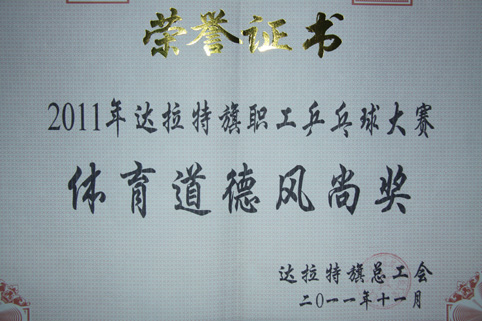 荣誉证书
2011年达拉特旗职工乒乓球大赛
体育道德风尚奖
达拉特旗总工会
二〇一一年十一月